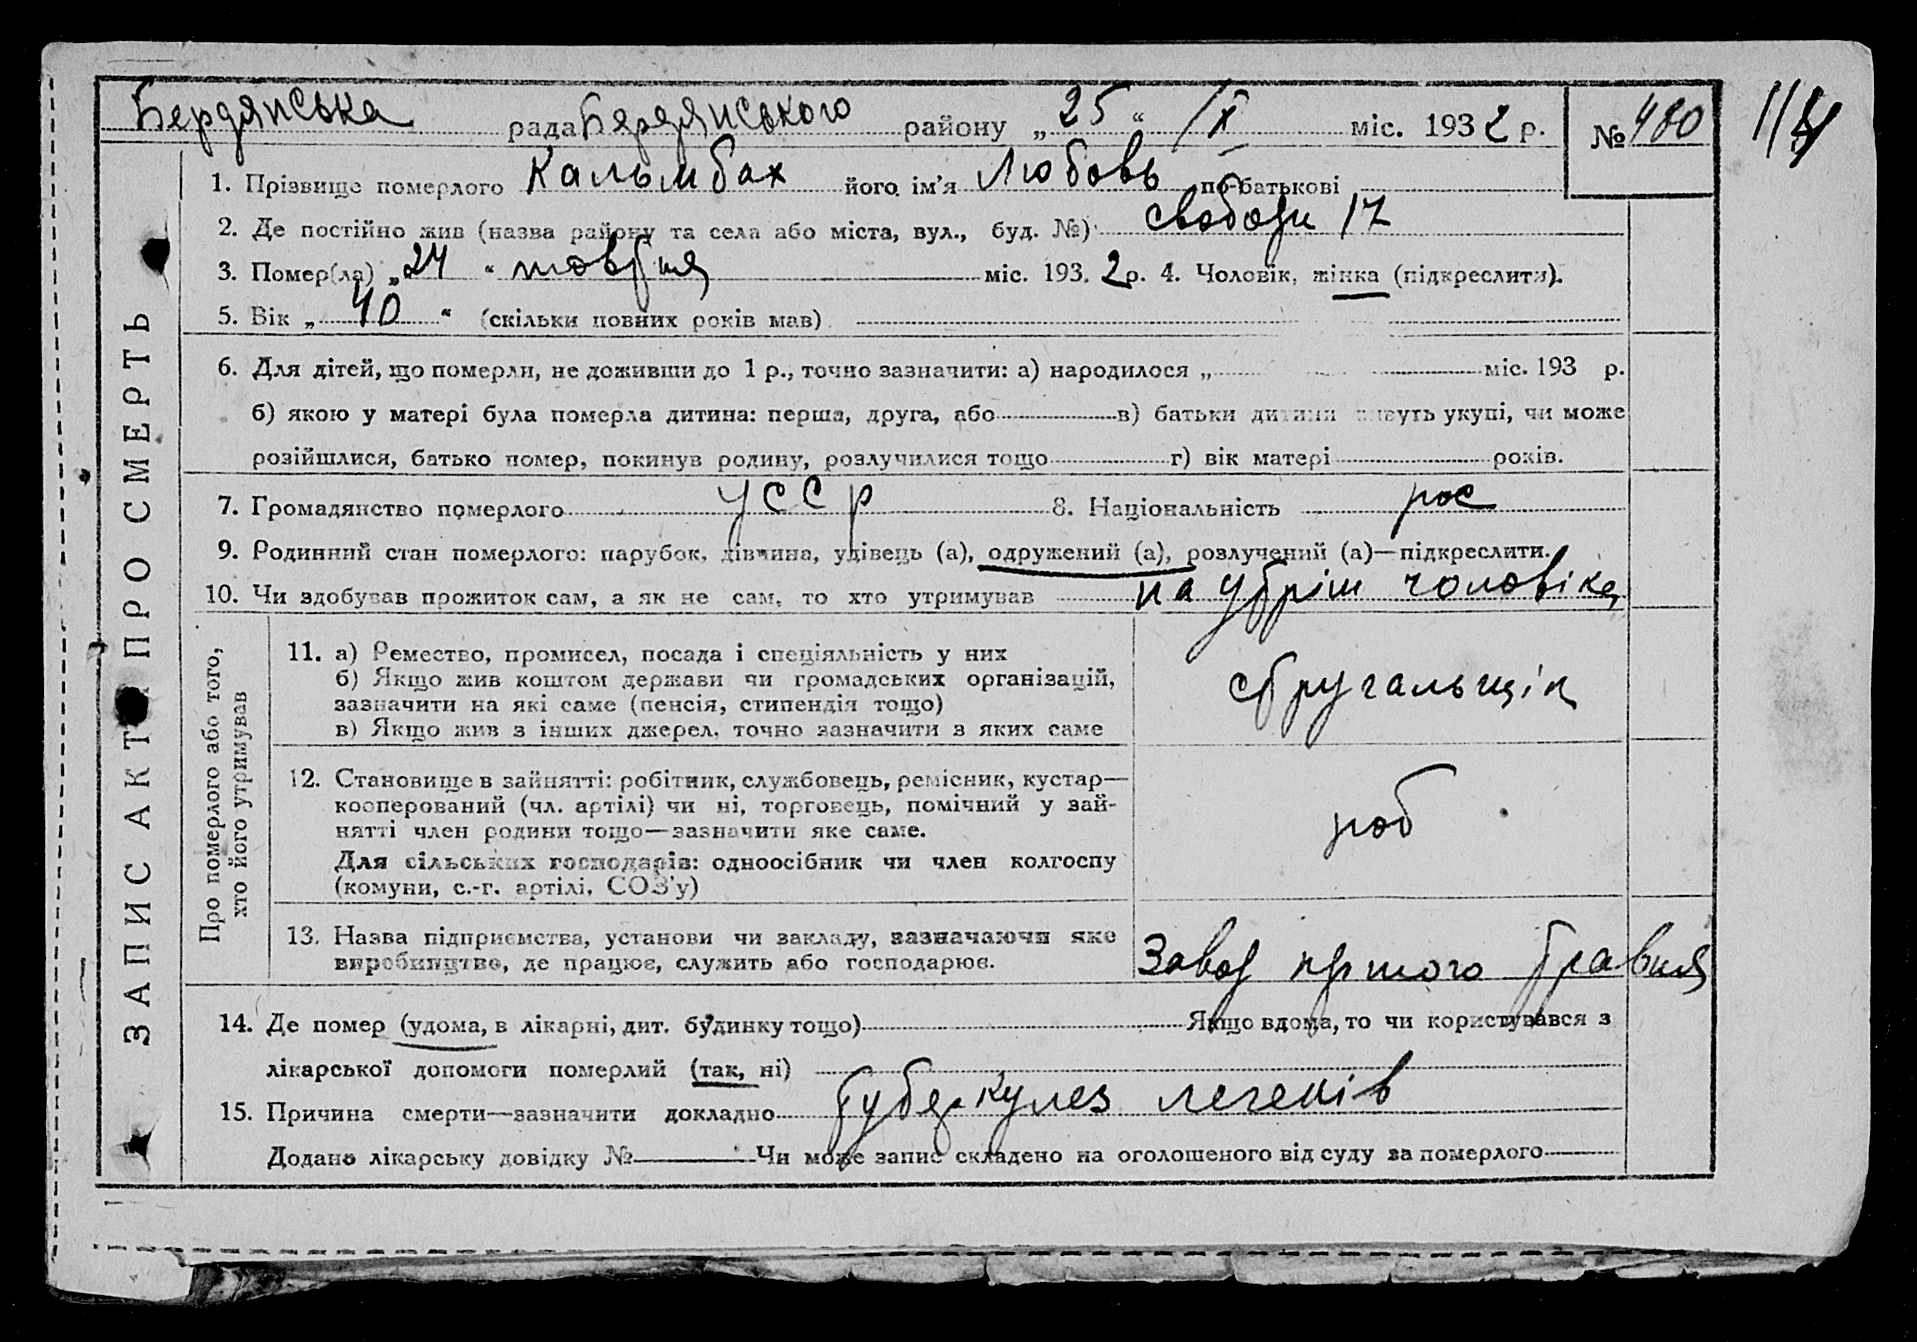 Бердянська рада Бердянського району „25“ /X міс. 1932 р. № 480
1. Прізвище померлого Кальмбах його ім’я Любовь по-батькові
2. Де постійно жив (назва району та села або міста, вул., буд. №) свободи 17
3. Помер(ла) „24“ жовтня міс. 1932 р. 4. Чоловік, жінка (підкреслити).
5. Вік „40“ (скільки повних років мав)
6. Для дітей, що померли, не доживши до 1 р., точно зазначити: а) народилося „ міс. 193 р.
б) якою у матері була померла дитина: перша, друга, або в) батьки дитини живуть укупі, чи може
розійшлися, батько помер, покинув родину, розлучилися тощо г) вік матері років.
7. Громадянство померлого УССР 8. Національність рос
9. Родинний стан померлого: парубок, дівчина, удівець (а), одружений (а), розлучений (а)—підкреслити.
10. Чи здобував прожиток сам, а як не сам, то хто утримував на утрім чоловіка
ЗАПИС АКТ ПРО СМЕРТЬ
Про померлого або того,
хто його утримував
11. а) Ремество, промисел, посада і спеціяльність у них
б) Якщо жив коштом держави чи громадських організацій,
зазначити на які саме (пенсія, стипендія тощо)
в) Якщо жив з інших джерел, точно зазначити з яких саме
стругальщік
12. Становище в зайнятті: робітник, службовець, ремісник, кустар—
кооперований (чл. артілі) чи ні, торговець, помічний у зай-
нятті член родини тощо—зазначити яке саме.
Для сільських господарів: одноосібник чи член колгоспу
(комуни, с.-г. артілі, СОЗ’у)
роб
13. Назва підприємства, установи чи закладу, зазначаючи яке
виробництво, де працює, служить або господарює.
Завод першого травня
14. Де помер (удома, в лікарні, дит. будинку тощо) Якщо вдома, то чи користувався з
лікарської допомоги померлий (так, ні)
15. Причина смерти—зазначити докладно туберкулез легенів
Додано лікарську довідку № Чи може запис складено на оголошеного від суду за померлого